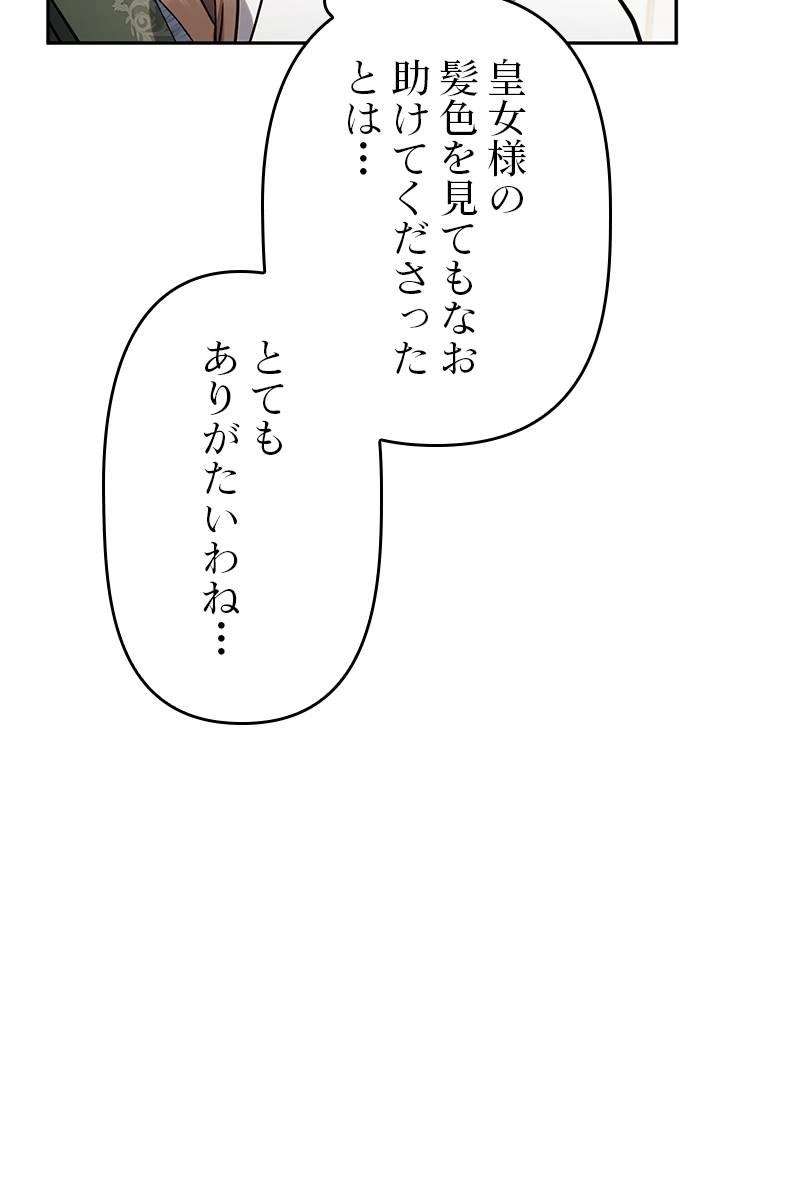 皇女様の
髪色を見てもなお
助けてくださった
とは…
とても
ありがたいわね…